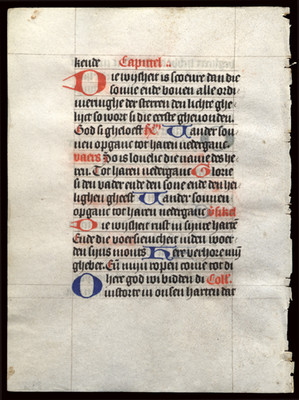 kende Capittel
Die wijsheit is scoenre dan die
sonne ende bouen alle ordi
nieringhe der sterren den lichte ghe
lijct so wort si die eerste gheuonden.
God si gheloeft Van der son
nen opganc tot haren nedergane
vaers So is louelic die name des he
ren. Tot haren nedergane Glorie
si den vader ende den sone ende den hei
lighen gheest Van der sonnen
opganc tot haren nedergane
Die wijsheit rust in sijnre harte
Ende die voersienicheit inden woer
den sijns monts Here verhore mijn
ghebet. En mijn ropen come tot di
O here god wi bidden di Coll.
instorte in onsen harten dat